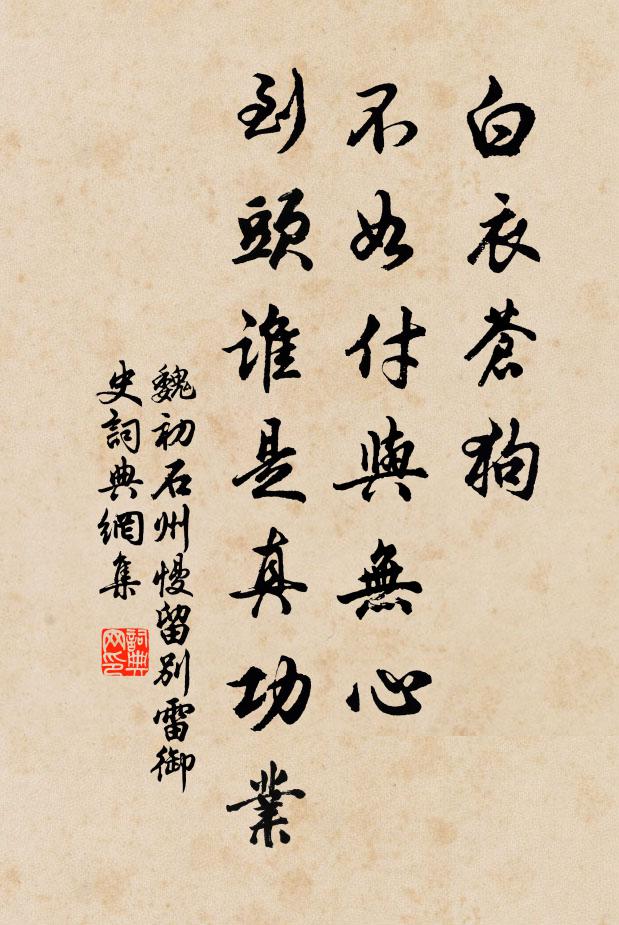 白衣蒼狗
不如付與無心
到頭誰是真功業
魏初石州慢留別雷御
史詞典網集
詞典
网印